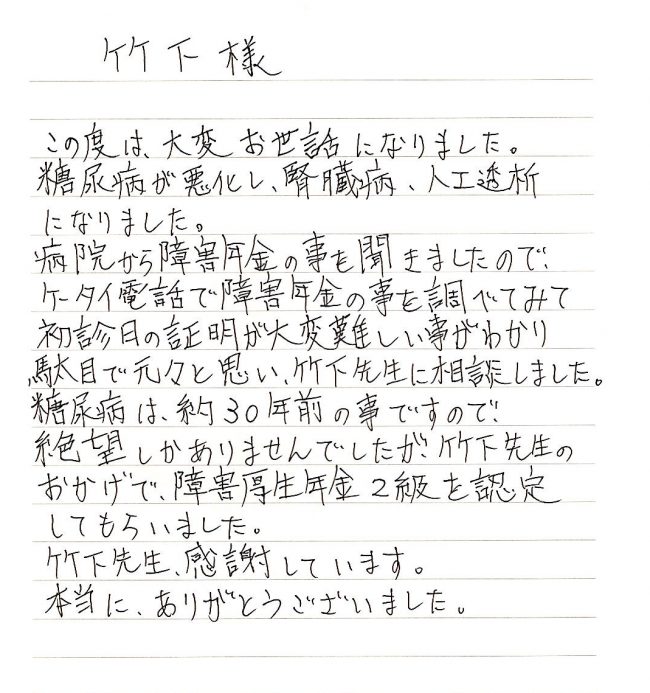 竹下様
この度は、大変お世話になりました。
糖尿病が悪化し、腎臓病、人工透析
になりました。
病院から障害年金の事を聞きましたので、
ケータイ電話で障害年金の事を調べてみて
初診日の証明が大変難しい事がわかり
駄目で元々と思い、竹下先生に相談しました。
糖尿病は、約30年前の事ですので、
絶望しかありませんでしたが、竹下先生の
おかげで、障害厚生年金2級を認定
してもらいました。
竹下先生、感謝しています。
本当に、ありがとうございました。